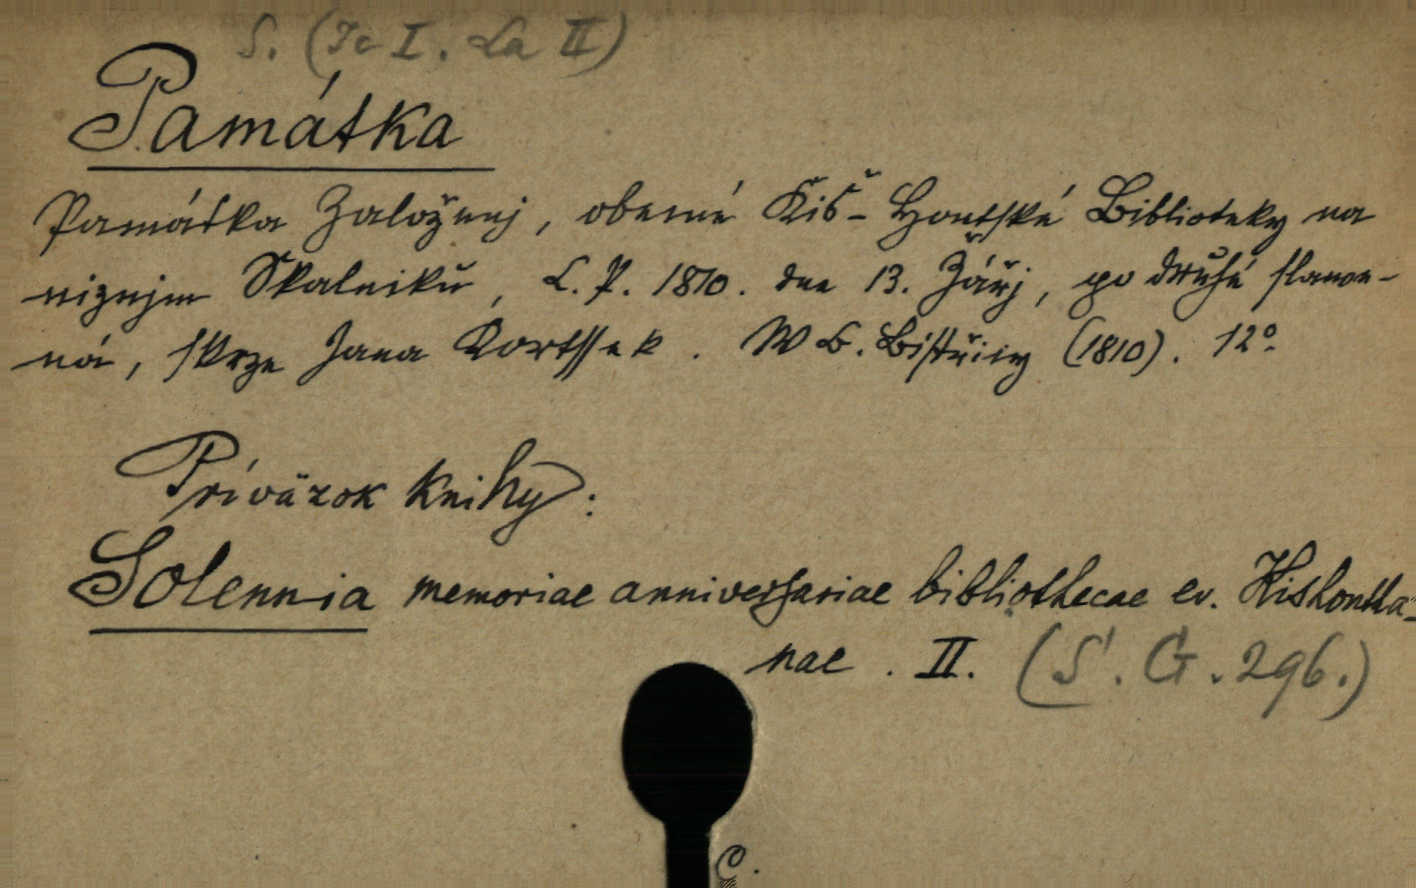 S. (Je I. La II)
Památka
Památka Založenj, obecné Kiš-Hontské Biblioteky na
niznjm Skalniku, L.P. 1810. dne 13. Žářj, po druhé slawe-
ná, skrze Jana Kortssek. W B. Bistřicy (1810). 12°.
Príväzok knihy:
Solennia memoriae anniversariae bibliothecae ev. Kishontha-
nae. II. (S. G. 296.)
C.